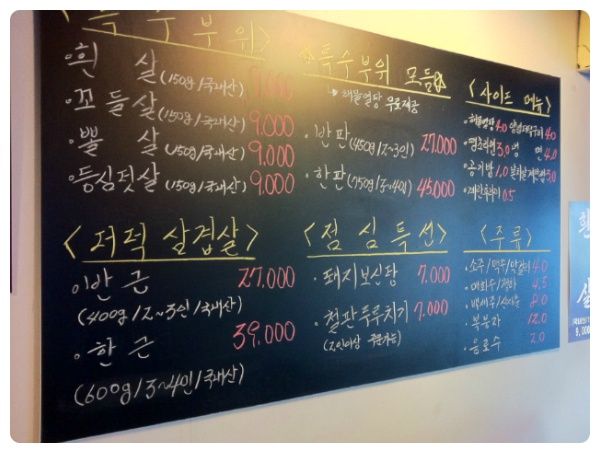 <특수부위>
·흰 살 (150g/국내산) 9.000
·꼬들살 (150g/국내산) 9.000
·뽈 살 (150g/국내산) 9.000
·등심덧살 (150g/국내산) 9.000
<특수부위 모듬>
해물얼탕 무료제공
·반판 (450g/2~3인) 27.000
·한판 (750g/3~4인) 45.000
<사이드 메뉴>
4.0 4.0
3.0 냉 면 4.0
·공기밥 1.0 3.0
·계란후라이 0.5
<더덕 삼겹살>
·반 근 27.000
(400g/2~3인/국내산)
·한 근 39.000
(600g/3~4인/국내산)
<점심특선>
·돼지보신탕 7.000
·철판두루치기 7.000
(2인이상 주문가능)
<주류>
·소주/맥주/막걸리 4.0
·매화수/청하 4.5
·백세주/산사춘 8.0
·복분자 12.0
·음료수 2.0
흰
살
9,000